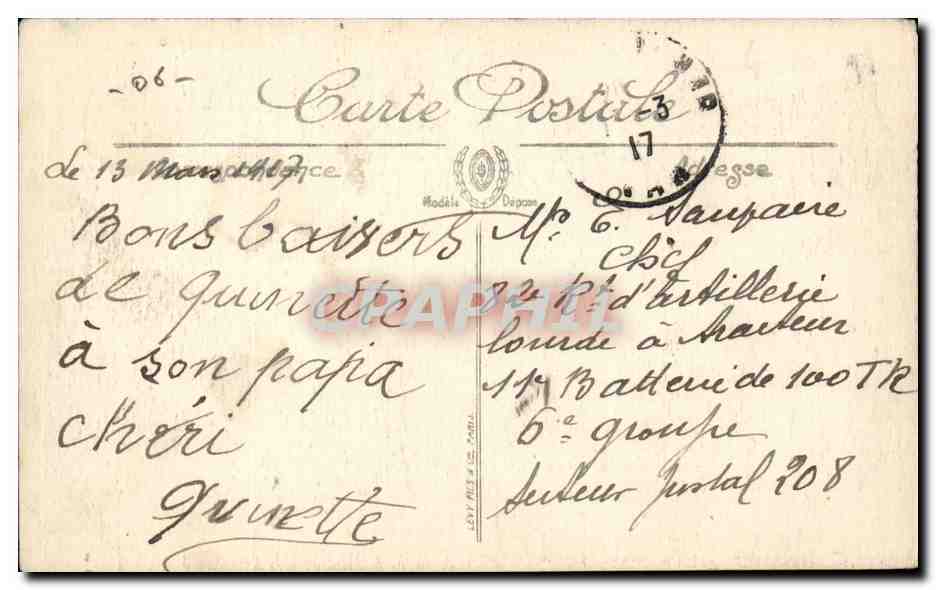 -06-
Carte Postale
-3
17
Le 13 Mars 1917
Correspondance
Adresse
Modèle Déposé
Bons baisers
de Guinette
à son papa
chéri
Guinette
Mr E.
82e Rt d'artillerie
lourde à tracteur
11e Batterie de 100 TR
6e groupe
secteur postal 208
LEVY FILS & Cie PARIS
CPAPHIL